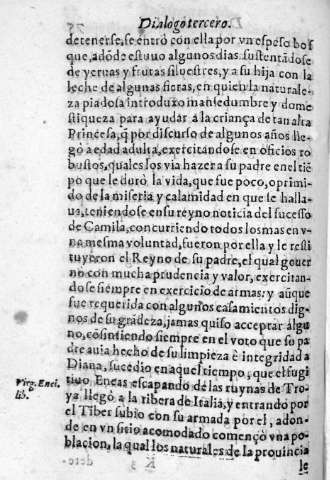 Dialogo tercero.
detenerse, se entrò con ella por vn espeso bos
que, adõde estuuo algunos dias, sustentãdose
de yeruas y frutas siluestres, y a su hija con la
leche de algunas fieras, en quien la naturale-
za piadosa introduxo mansedumbre y dome
stiqueza para ayudar a la criança de tan alta
Princesa, q̃ por discurso de algunos años lle-
gò a edad adulta, exercitandose en oficios ro
bustos, quales los via hazer a su padre en el tiẽ
po que le durò la vida, que fue poco, oprimi-
do de la miseria y calamidad en que le halla-
ua, teniendose en su reyno noticia del sucesso
de Camila, concurriendo todos los mas en v-
na mesma voluntad, fueron por ella y le resti
tuyeron el Reyno de su padre, el qual gouer
no con mucha prudencia y valor, exercitan-
dose siempre en exercicio de armas: y aũque
fue requerida con algunos casamientos dig-
nos de su grãdeza, jamas quiso acceptar algu
no, cõsintiendo siempre en el voto que so pa
dre auia hecho de su limpieza è integridad a
Diana, sucedio en aquel tiempo, que el fugi
tiuo Eneas escapando de las ruynas de Tro-
ya llegò a la ribera de Italia, y entrando por
el Tiber subio con su armada por el, adon-
de en vn sitio acomodado començò vna po-
blacion, la qual los naturales de la prouincia
le
Virg. Enei.
lib.